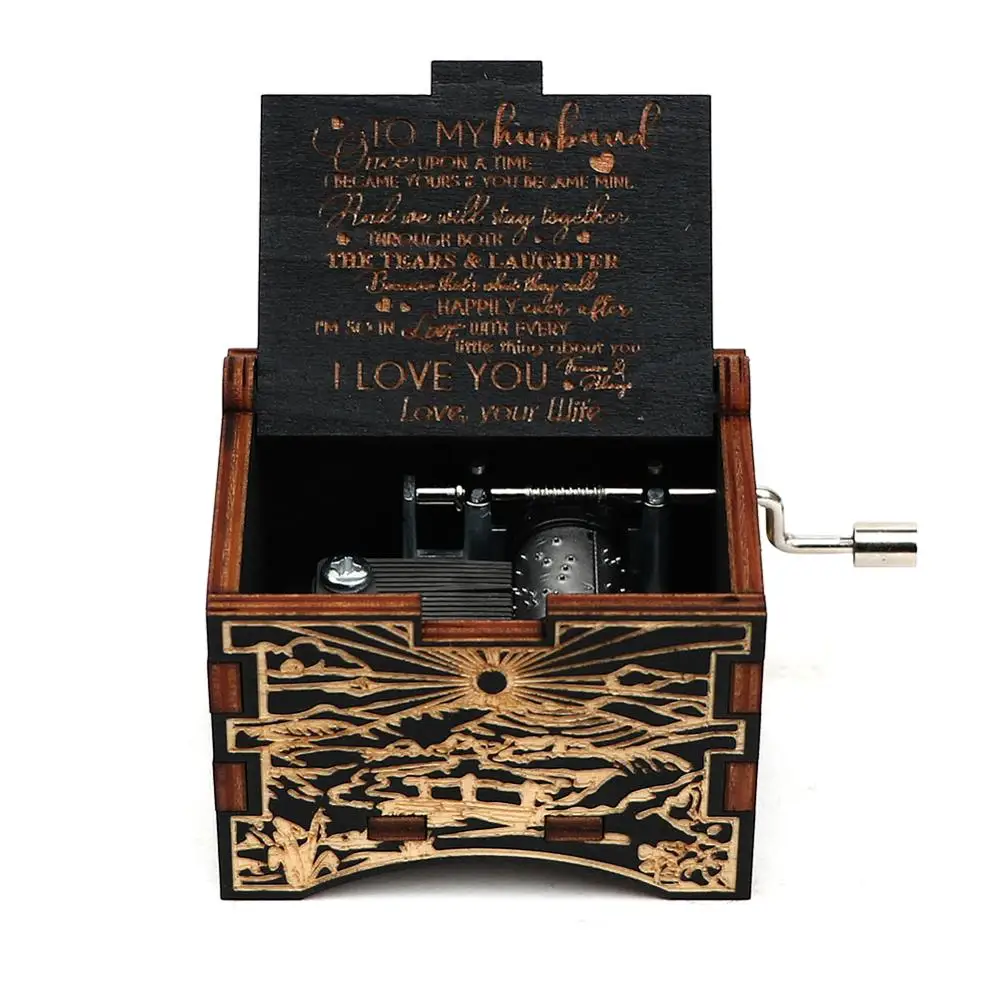 TO MY husband
Once UPON A TIME
I BECAME YOURS & YOU BECAME MINE
And we will stay together
THROUGH BOTH
THE TEARS & LAUGHTER
Because that's what they call
HAPPILY ever after
I'M SO IN Love WITH EVERY
little thing about you
I LOVE YOU Forever & Always
Love, your Wife